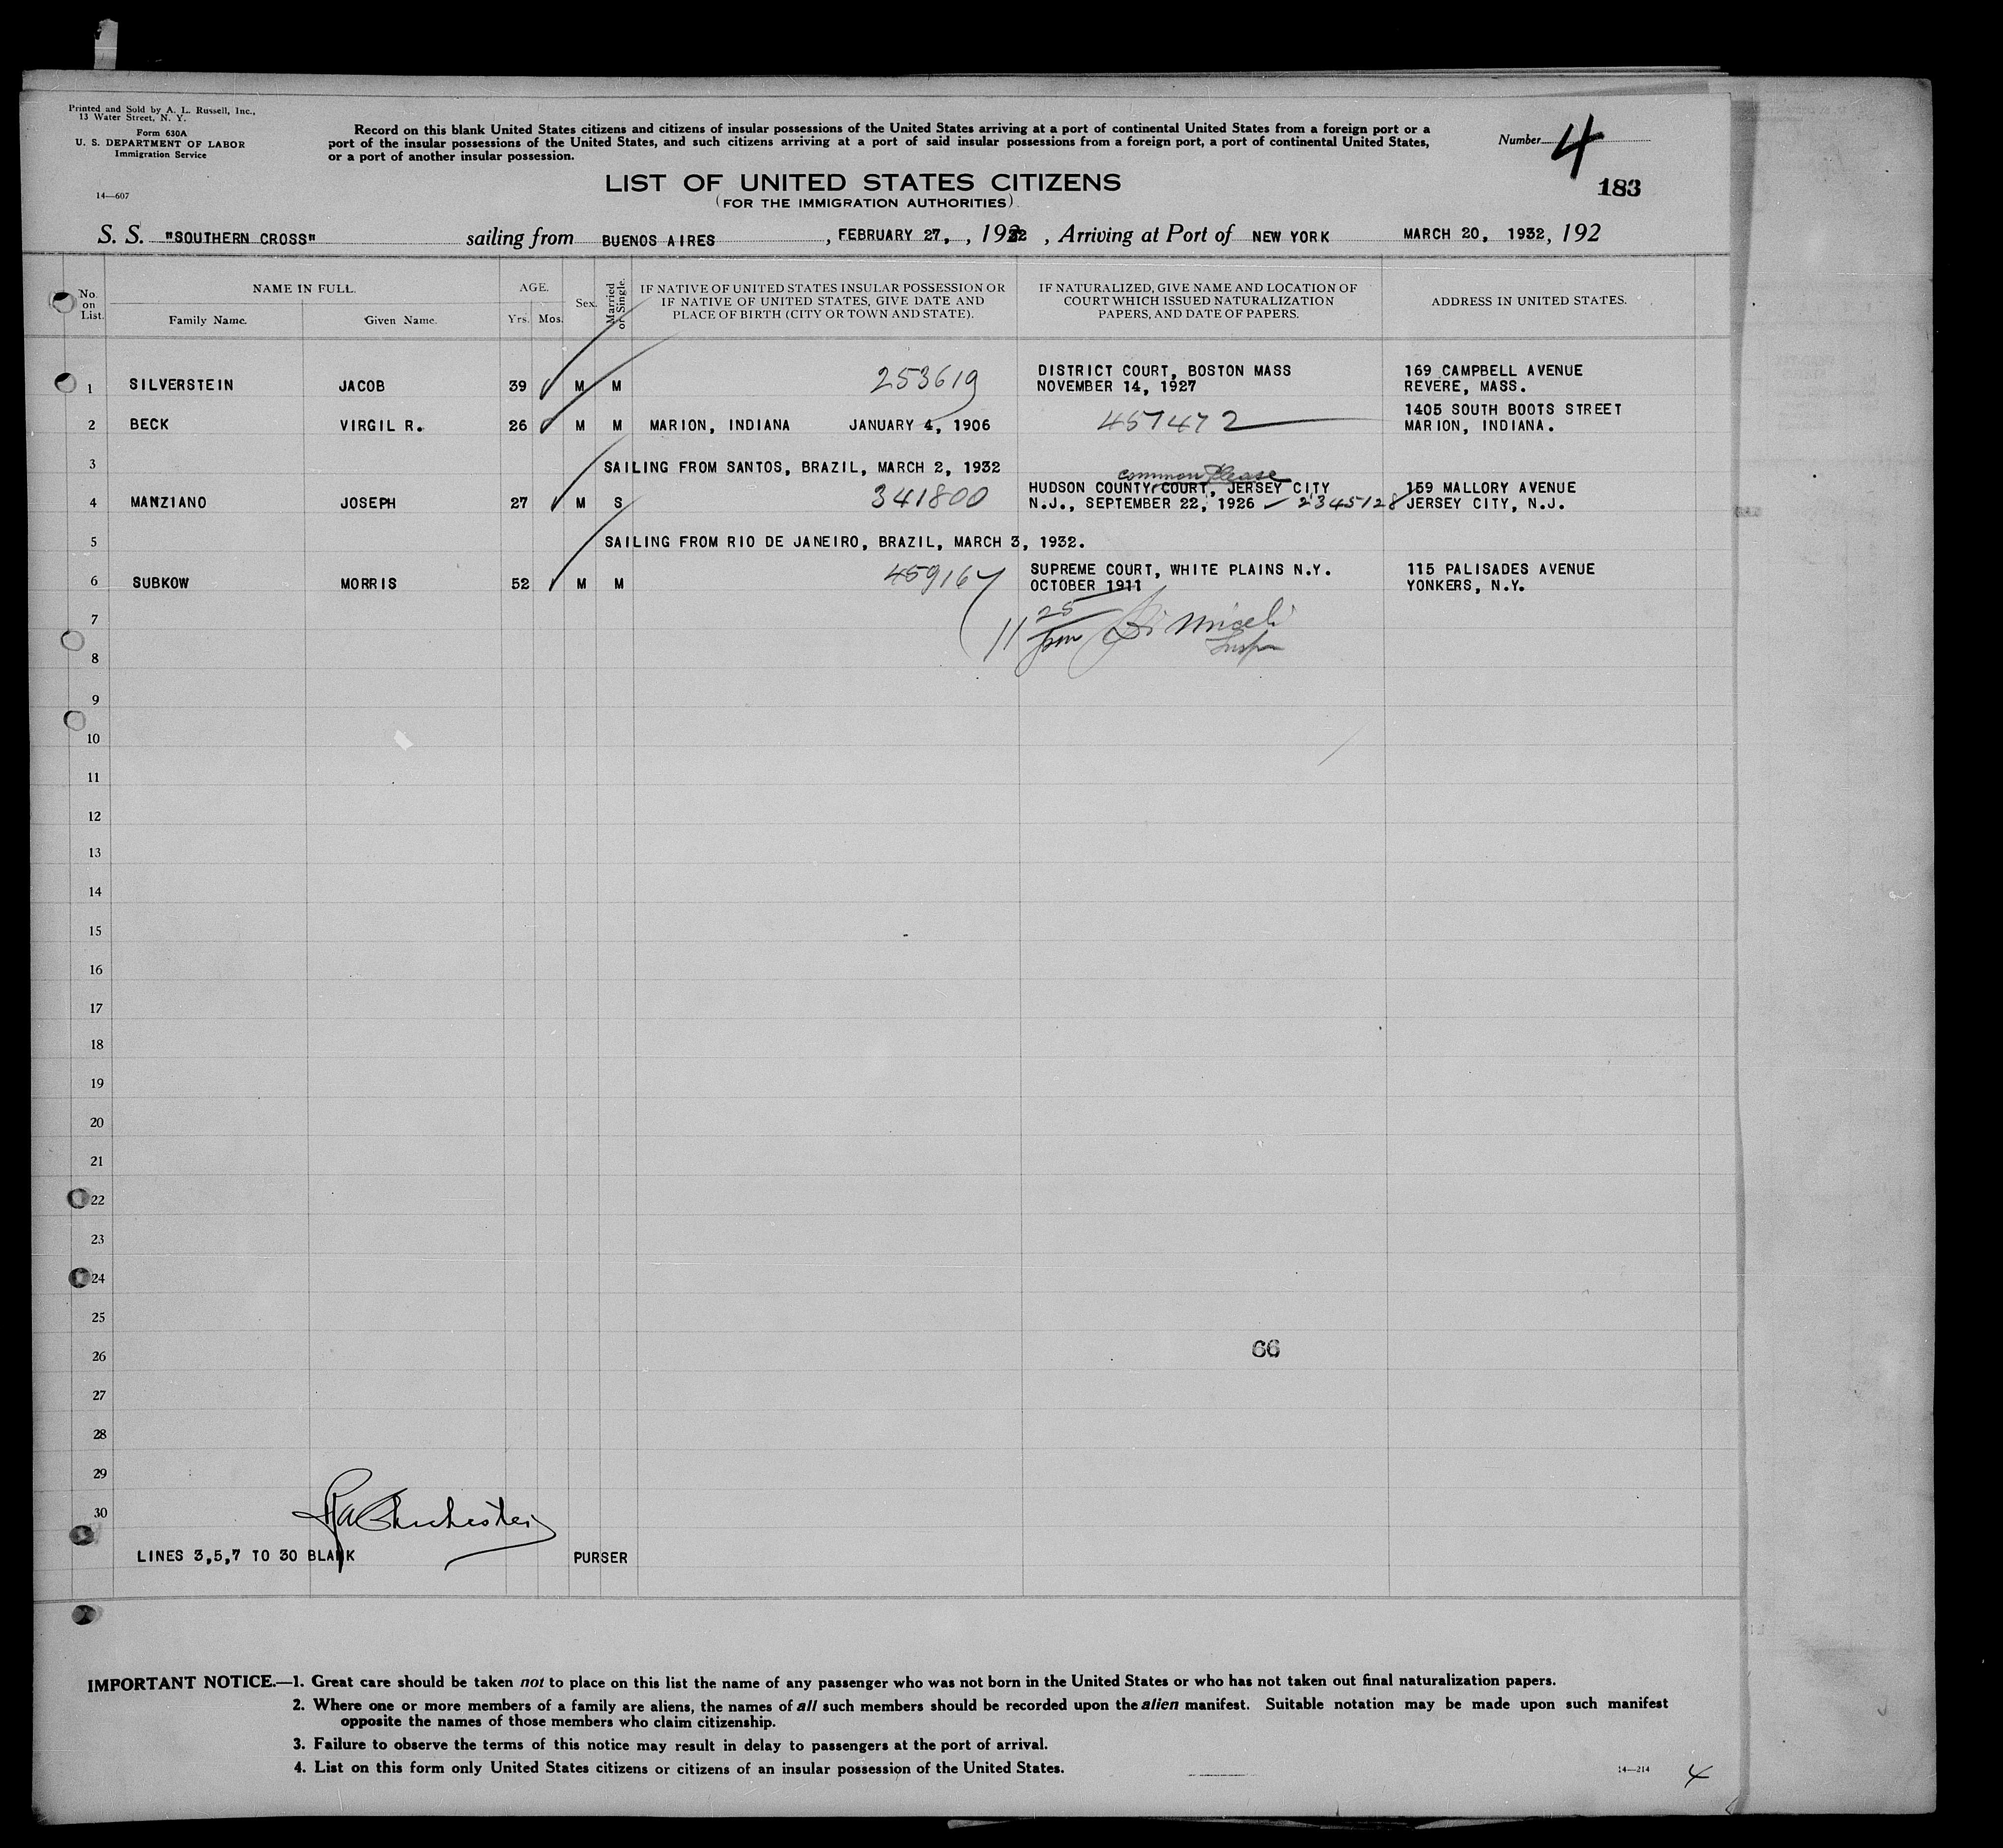 Printed and Sold by A. L. Russell, Inc.,
13 Water Street, N. Y.
Form 630A
U. S. DEPARTMENT OF LABOR
Immigration Service
14—607
Record on this blank United States citizens and citizens of insular possessions of the United States arriving at a port of continental United States from a foreign port or a
port of the insular possessions of the United States, and such citizens arriving at a port of said insular possessions from a foreign port, a port of continental United States,
or a port of another insular possession.
Number 4
183
LIST OF UNITED STATES CITIZENS
(FOR THE IMMIGRATION AUTHORITIES)
S. S. "SOUTHERN CROSS" sailing from BUENOS AIRES , FEBRUARY 27, , 1932 , Arriving at Port of NEW YORK MARCH 20, 1932, 192
No. on List.
NAME IN FULL.
Family Name. Given Name.
AGE.
Yrs. Mos.
Sex.
Married or Single.
IF NATIVE OF UNITED STATES INSULAR POSSESSION OR
IF NATIVE OF UNITED STATES, GIVE DATE AND
PLACE OF BIRTH (CITY OR TOWN AND STATE).
IF NATURALIZED, GIVE NAME AND LOCATION OF
COURT WHICH ISSUED NATURALIZATION
PAPERS, AND DATE OF PAPERS.
ADDRESS IN UNITED STATES.
DISTRICT COURT, BOSTON MASS 169 CAMPBELL AVENUE
1 SILVERSTEIN JACOB 39 M M 253619 NOVEMBER 14, 1927 REVERE, MASS.
1405 SOUTH BOOTS STREET
2 BECK VIRGIL R. 26 M M MARION, INDIANA JANUARY 4, 1906 457472 MARION, INDIANA.
3 SAILING FROM SANTOS, BRAZIL, MARCH 2, 1932
common Please
HUDSON COUNTY COURT, JERSEY CITY 159 MALLORY AVENUE
4 MANZIANO JOSEPH 27 M S 341800 N.J., SEPTEMBER 22, 1926 2345128 JERSEY CITY, N.J.
5 SAILING FROM RIO DE JANEIRO, BRAZIL, MARCH 3, 1932.
SUPREME COURT, WHITE PLAINS N.Y. 115 PALISADES AVENUE
6 SUBKOW MORRIS 52 M M 459167 OCTOBER 1911 YONKERS, N.Y.
7
8
9
10
11
12
13
14
15
16
17
18
19
20
21
22
23
24
25
26 66
27
28
29
30
LINES 3,5,7 TO 30 BLANK PURSER
IMPORTANT NOTICE.—1. Great care should be taken not to place on this list the name of any passenger who was not born in the United States or who has not taken out final naturalization papers.
2. Where one or more members of a family are aliens, the names of all such members should be recorded upon the alien manifest. Suitable notation may be made upon such manifest
opposite the names of those members who claim citizenship.
3. Failure to observe the terms of this notice may result in delay to passengers at the port of arrival.
4. List on this form only United States citizens or citizens of an insular possession of the United States.
14—214 4